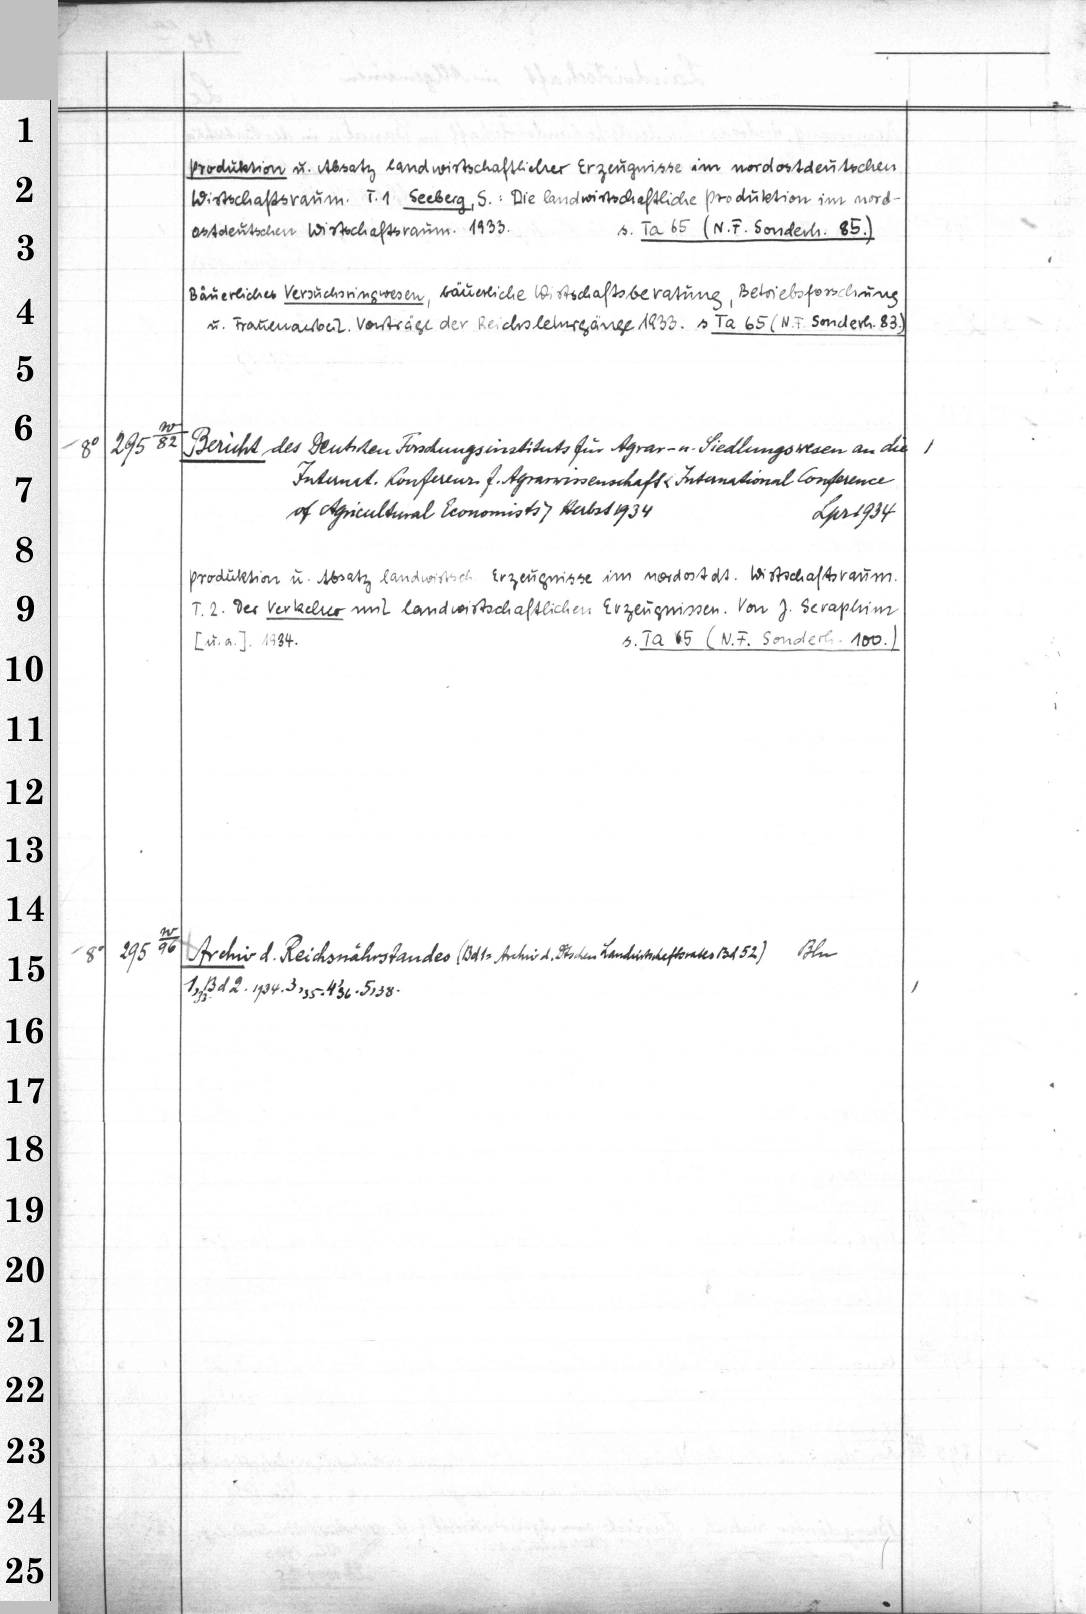 1
2
3
4
5
6
7
8
9
10
11
12
13
14
15
16
17
18
19
20
21
22
23
24
25
Produktion u. Absatz landwirtschaftlicher Erzeugnisse im nordostdeutschen
Wirtschaftsraum. T. 1 Seeberg, S.: Die landwirtschaftliche Produktion im nord-
ostdeutschen Wirtschaftsraum. 1933. s. Ta 65 (N.F. Sonderh. 85.)
Bäuerliches Versuchsringwesen, bäuerliche Wirtschaftsberatung, Betriebsforschung
u. Frauenarbeit. Vorträge der Reichslehrgänge 1933. s Ta 65 (N.F. Sonderh. 83.)
8° 295 w/82 Bericht des Deutschen Forschungsinstituts für Agrar- u. Siedlungswesen an die 1
Internat. Konferenz f. Agrarwissenschaft < International Conference
of Agricultural Economists > Herbst 1934 Lpz 1934
Produktion u. Absatz landwirtsch. Erzeugnisse im nordostdt. Wirtschaftsraum.
T. 2. Der Verkehr mit landwirtschaftlichen Erzeugnissen. Von J. Seraphim
[u. a.]. 1934. s. Ta 65 (N.F. Sonderh. 100.)
8° 295 w/96 Archiv d. Reichsnährstandes (Bd 1 = Archiv d. Dtschen Landwirtschaftsrates Bd 52) Bln
1,33. Bd 2. 1934. 3,35. 4,36. 5,38. 1